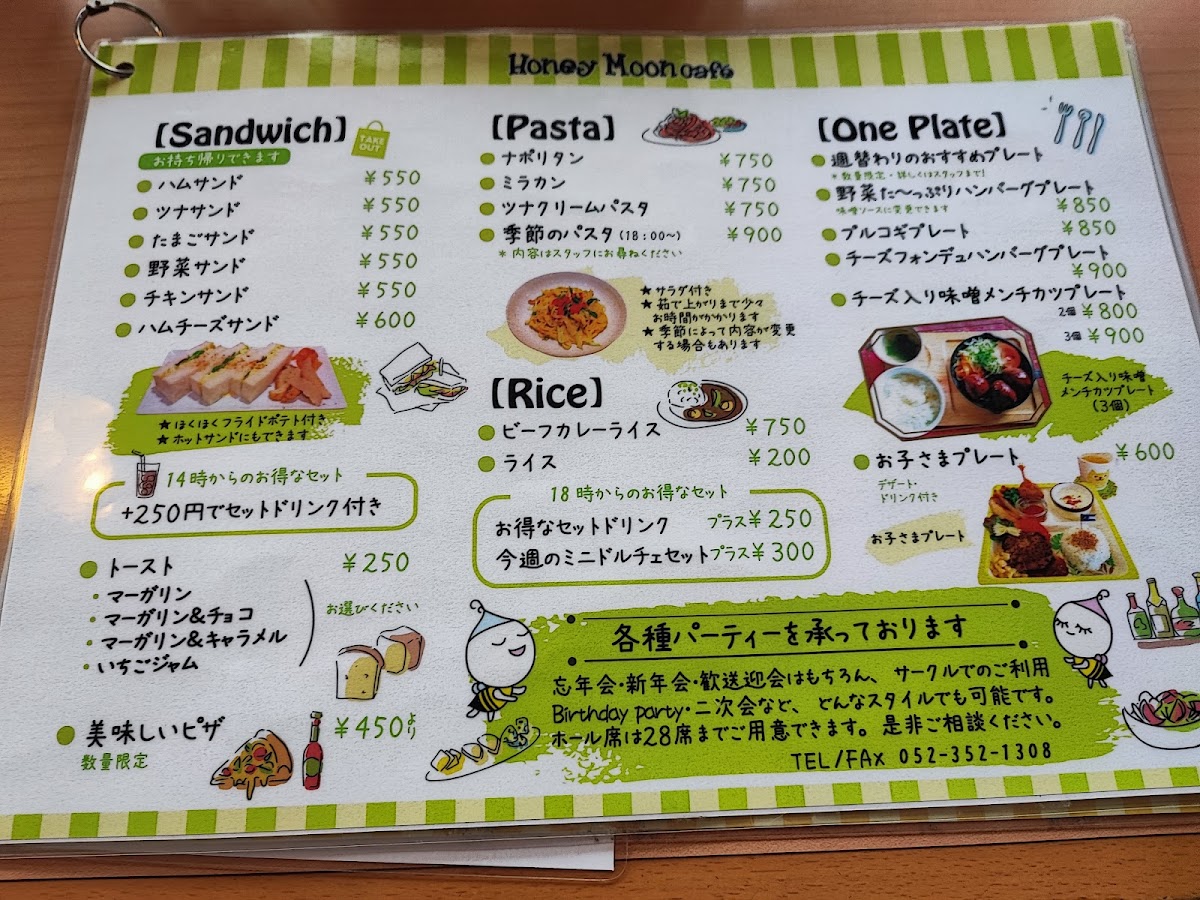 Honey Moon cafe
【Sandwich】
TAKE OUT
お持ち帰りできます
ハムサンド ¥550
ツナサンド ¥550
たまごサンド ¥550
野菜サンド ¥550
チキンサンド ¥550
ハムチーズサンド ¥600
★ほくほくフライドポテト付き
★ホットサンドにもできます
14時からのお得なセット
+250円でセットドリンク付き
トースト ¥250
・マーガリン
・マーガリン&チョコ
・マーガリン&キャラメル
・いちごジャム
お選びください
美味しいピザ ¥450より
数量限定
【Pasta】
ナポリタン ¥750
ミラカン ¥750
ツナクリームパスタ ¥750
季節のパスタ(18:00〜) ¥900
*内容はスタッフにお尋ねください
★サラダ付き
★茹で上がりまで少々
お時間がかかります
★季節によって内容が変更
する場合もあります
【Rice】
ビーフカレーライス ¥750
ライス ¥200
18時からのお得なセット
お得なセットドリンク プラス¥250
今週のミニドルチェセット プラス¥300
【One Plate】
週替わりのおすすめプレート
*数量限定・詳しくはスタッフまで!
野菜た〜っぷりハンバーグプレート
味噌ソースに変更できます ¥850
プルコギプレート ¥850
チーズフォンデュハンバーグプレート
¥900
チーズ入り味噌メンチカツプレート
2個 ¥800
3個 ¥900
チーズ入り味噌
メンチカツプレート
(3個)
お子さまプレート ¥600
デザート・
ドリンク付き
お子さまプレート
各種パーティーを承っております
忘年会・新年会・歓送迎会はもちろん、サークルでのご利用
Birthday party・二次会など、どんなスタイルでも可能です。
ホール席は28席までご用意できます。是非ご相談ください。
TEL/FAX 052-352-1308